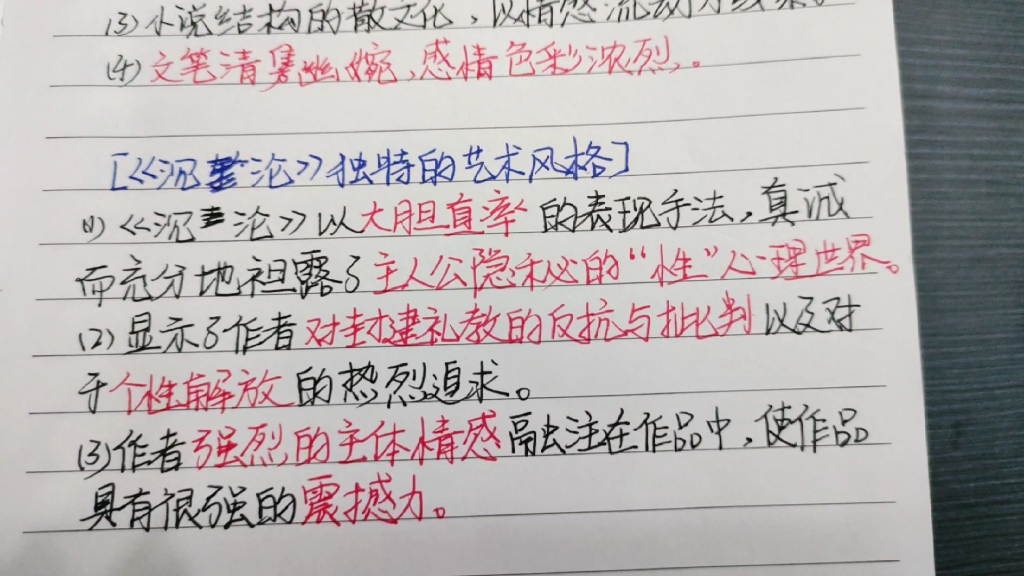 (3)小说结构的散文化,以情感流动为线索。
(4)文笔清隽幽婉,感情色彩浓烈。
[《沉沦》独特的艺术风格]
(1)《沉沦》以大胆直率的表现手法,真诚
而充分地袒露了主人公隐秘的“性”心理世界。
(2)显示了作者对封建礼教的反抗与批判以及对
于个性解放的热烈追求。
(3)作者强烈的主体情感融注在作品中,使作品
具有很强的震撼力。